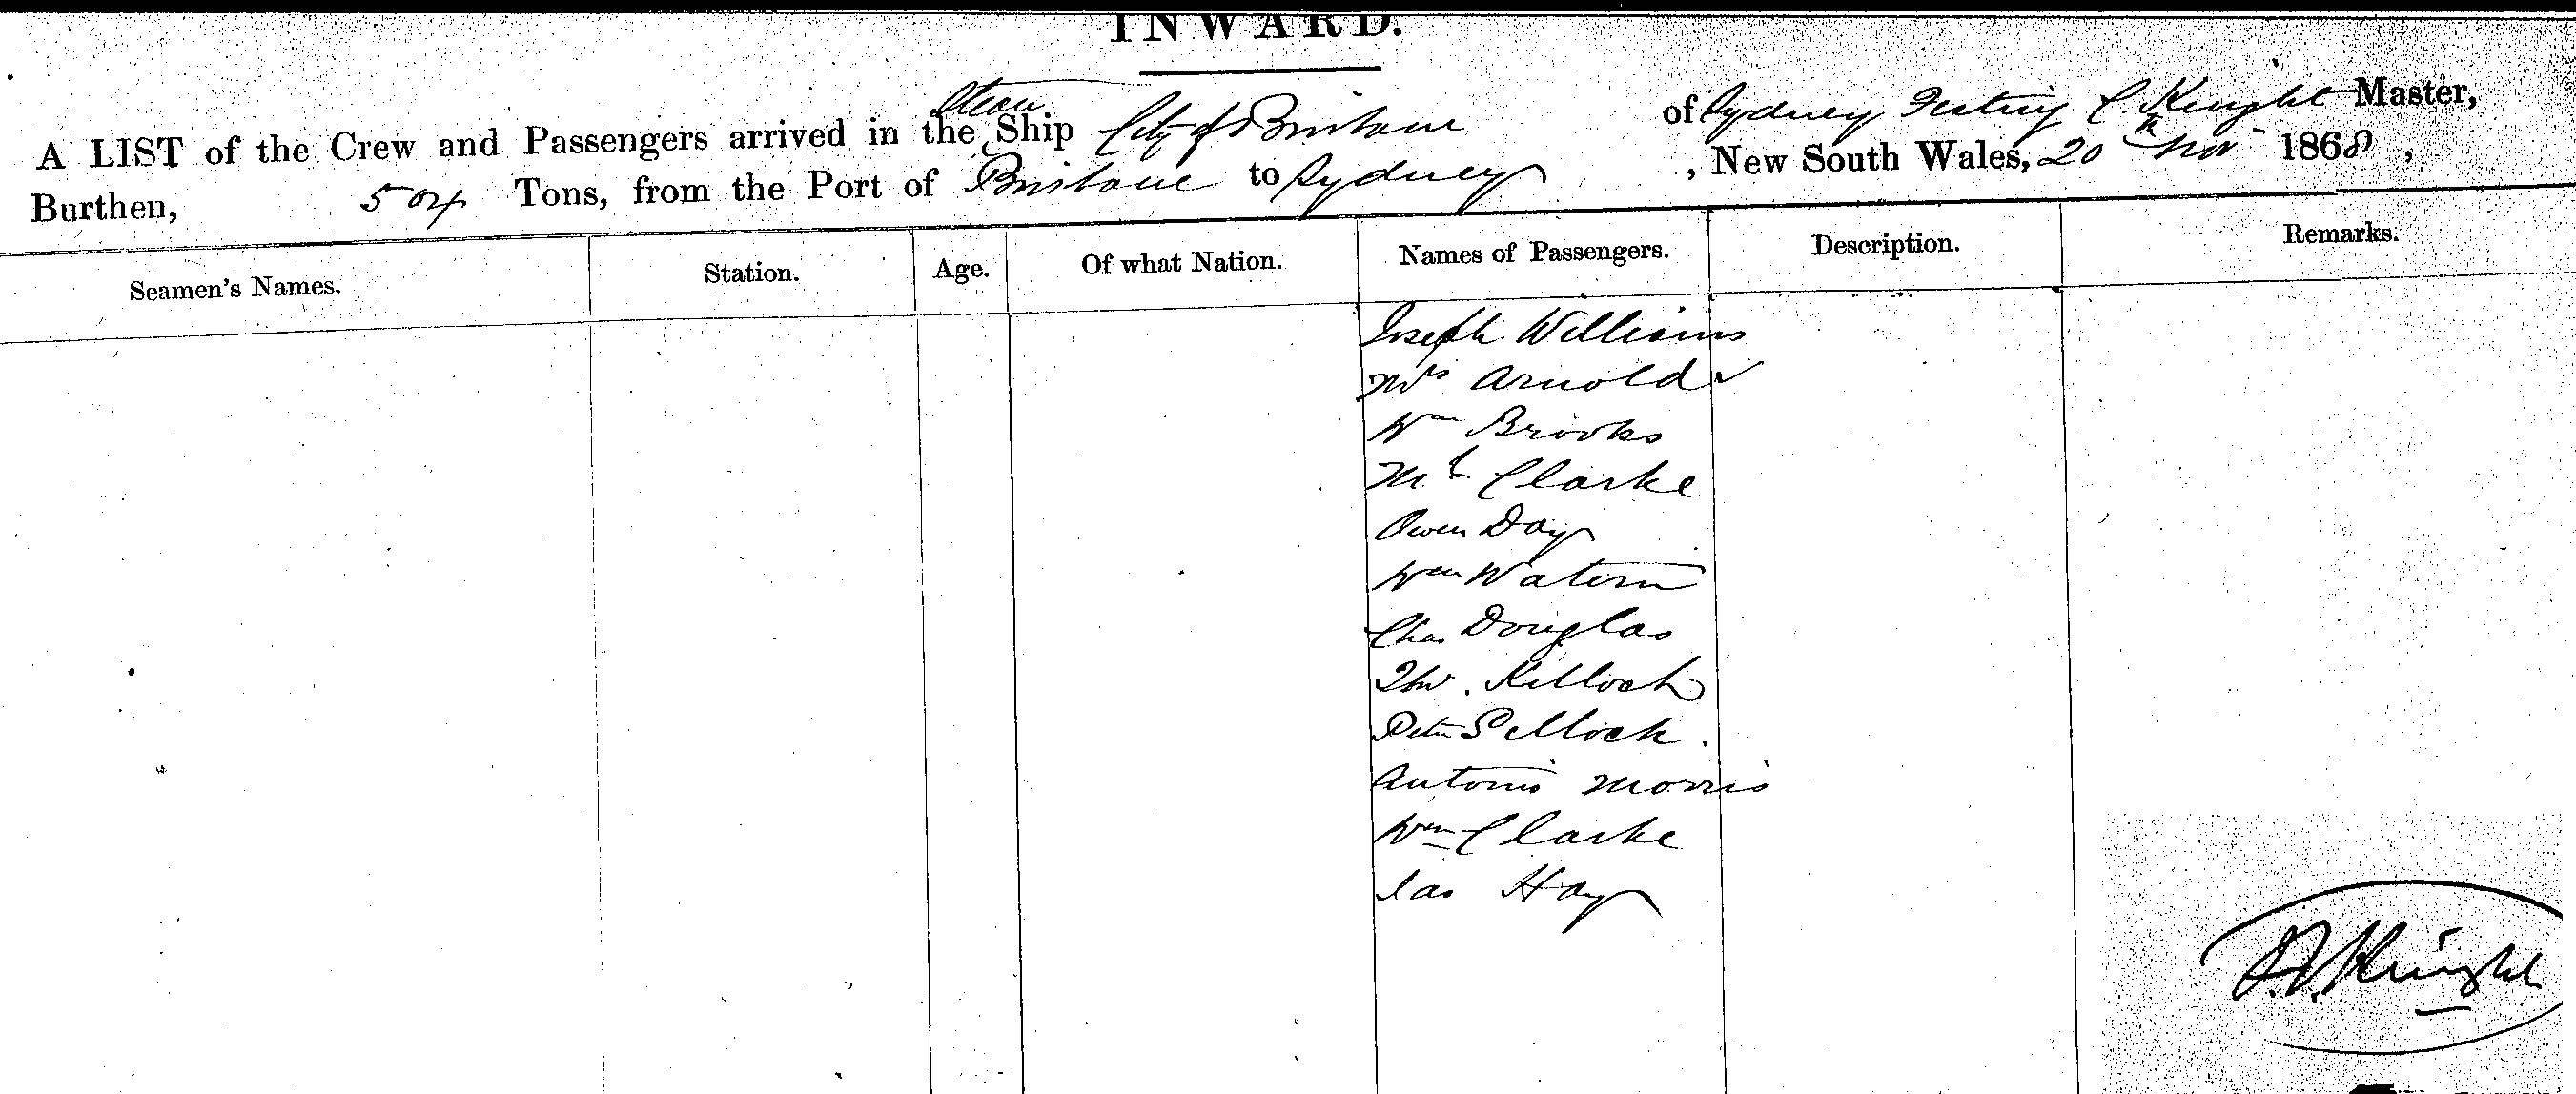 INWARD.
A LIST of the Crew and Passengers arrived in the Steam Ship City of Brisbane of Sydney C. Knight Master,
Burthen, 504 Tons, from the Port of Brisbane to Sydney, New South Wales, 20th Nov 1868,
Seamen's Names. Station. Age. Of what Nation. Names of Passengers. Description. Remarks.
Joseph Williams
Mrs Arnold
Wm Brooks
Mr Clarke
Owen Day
Wm
Chas Douglas
Killoch
Peter
Antonio Morris
Wm Clarke
Jas Hay
Knight